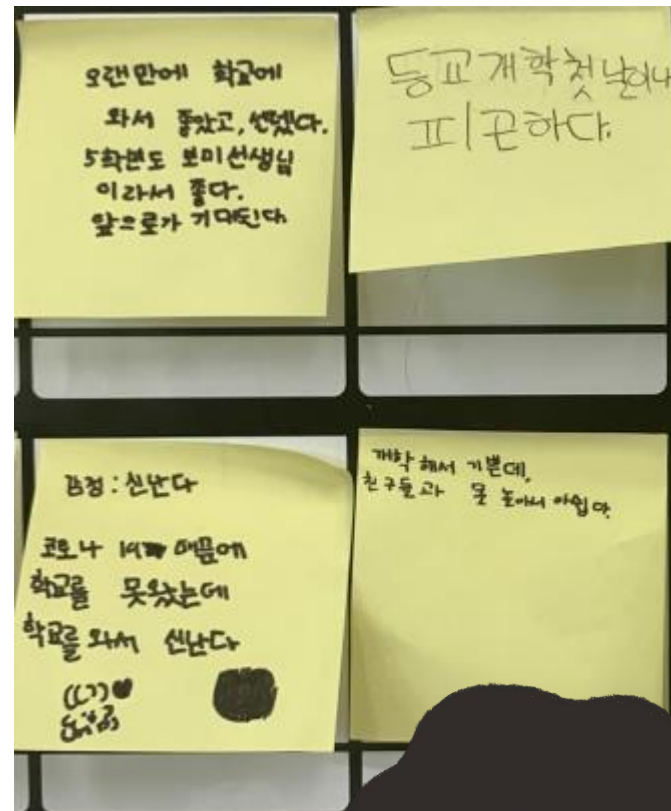 오랜만에 학교에
와서 좋았고, 설렜다.
5학년도 보미선생님
이라서 좋다.
앞으로가 기대된다.
등교개학첫날이나
피곤하다.
감정 : 신난다
코로나 19 때문에
학교를 못왔는데
학교를 와서 신난다
개학 해서 기쁜데,
친구들과 못 놀아서 아쉽다.